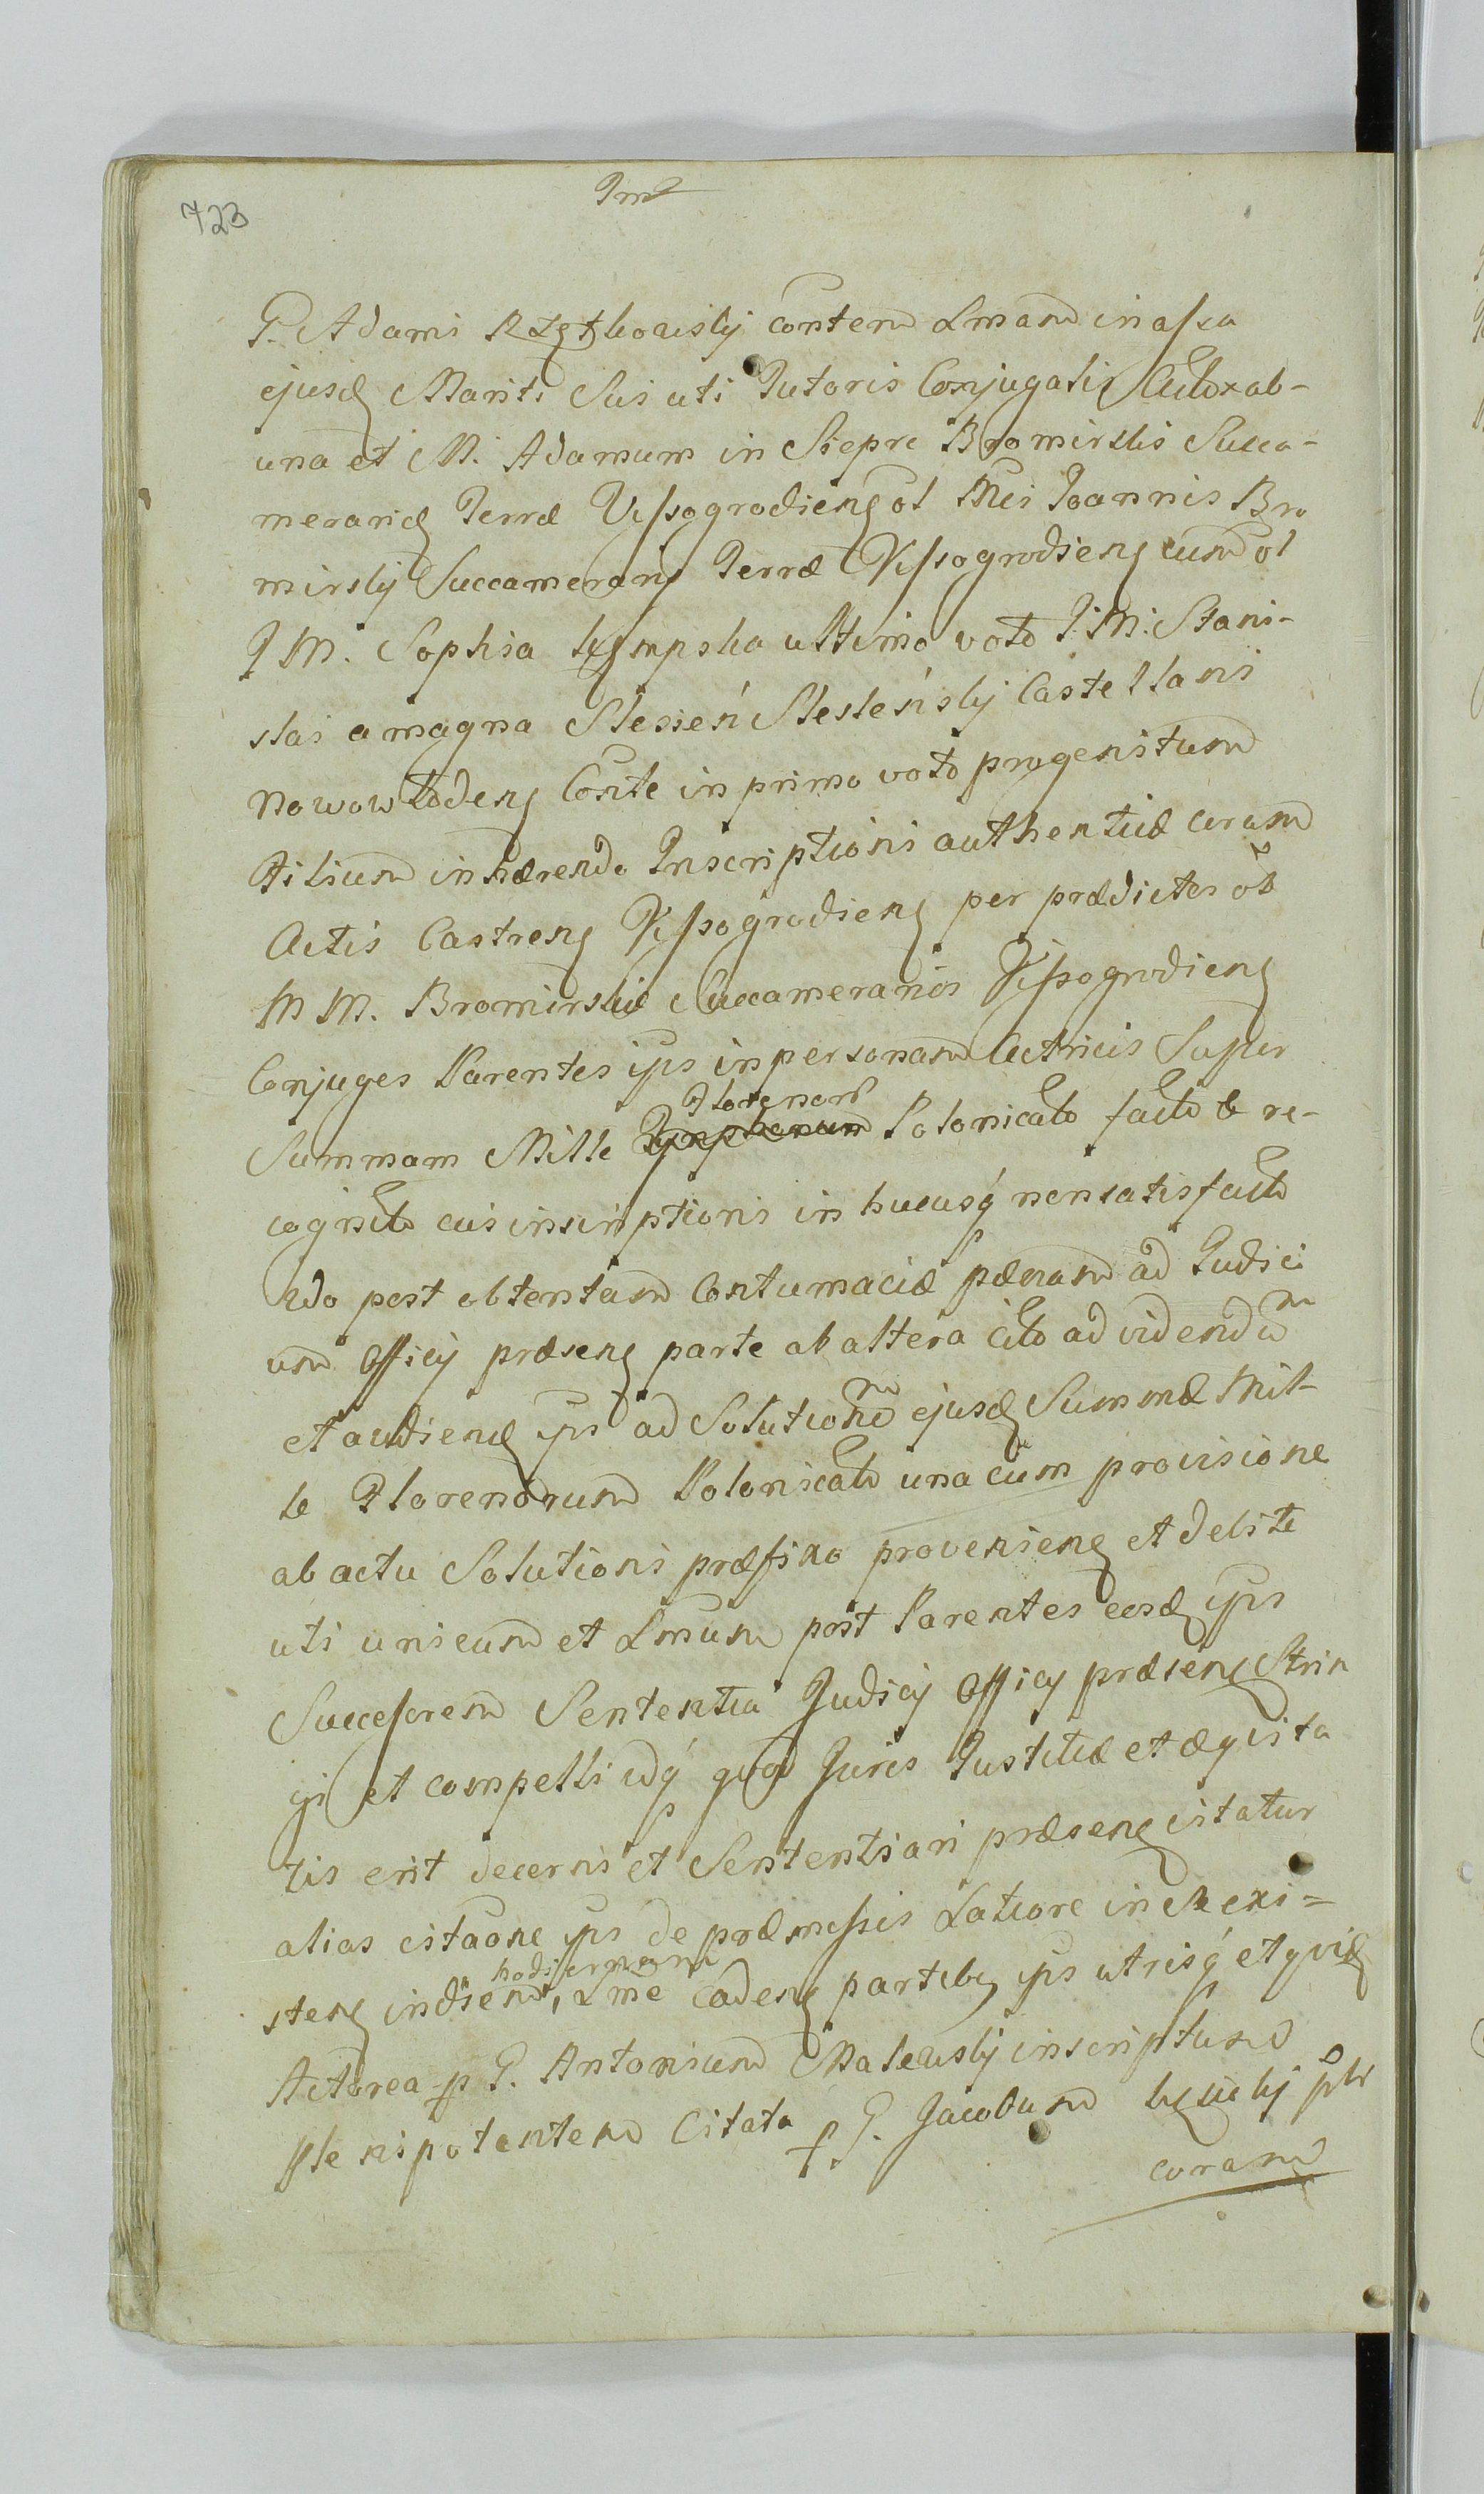 723
G. Adami Rzęthowiskÿ contem Lmam in assa
ejusd Mariti Sui uti Tutoris Conjugalis Actor ab-
una et M. Adamum in Siepre Bromirskis Succa-
merarid Terræ Vyssogrodieng ol Mei Joannis Bro
mirskÿ Succamerarÿ Terræ Vyssogrodieng cum ol
I M. Sophia Kęmpska ultimo voto I: M: Stani-
slai a magna Slesień Slesleńskÿ Castellani
nowowłodeng Conte in primo voto progenitum
Filium inhærendo Inscriptioni authenticæ coram
Actis Castreng Vyssogrodieng per prædictos ol
M M. Bromirskie Succamerarios Vyssogrodieng
Conjuges Parentes ips in personam Actricis Super
Florenor
Summam Mille Polonicalo facto & re-
cognito cui inscriptioni in hucusq non satisfacto
Ido post obtentam Contumaciæ pænam ad Judici
um Officÿ præseng parte ab altera cito ad videndu m
et audiend ips ad Solutione m ejusd Summæ Mil-
le Florenorum Polonicalo una cum provisione
ab actu Solutioni præfixo provenieng et debite
uti unicum et Lmum post Parentes eosd ips
Successorem Sententia Judicÿ Officÿ præseng Strin
gi et compelli idq quod Juris Justitiæ et æquita
tis erit decerni et Sententiari præseng citatur
alias citaone ips de præmissis Latiore in Re exi=
hodiernam
steng indiend, Lme cadeng partibg ips utrisq et quid
Actorea p G. Antonium Makowskÿ inscriptum
Plenipotentem Citata p G. Jacobum plr
coram